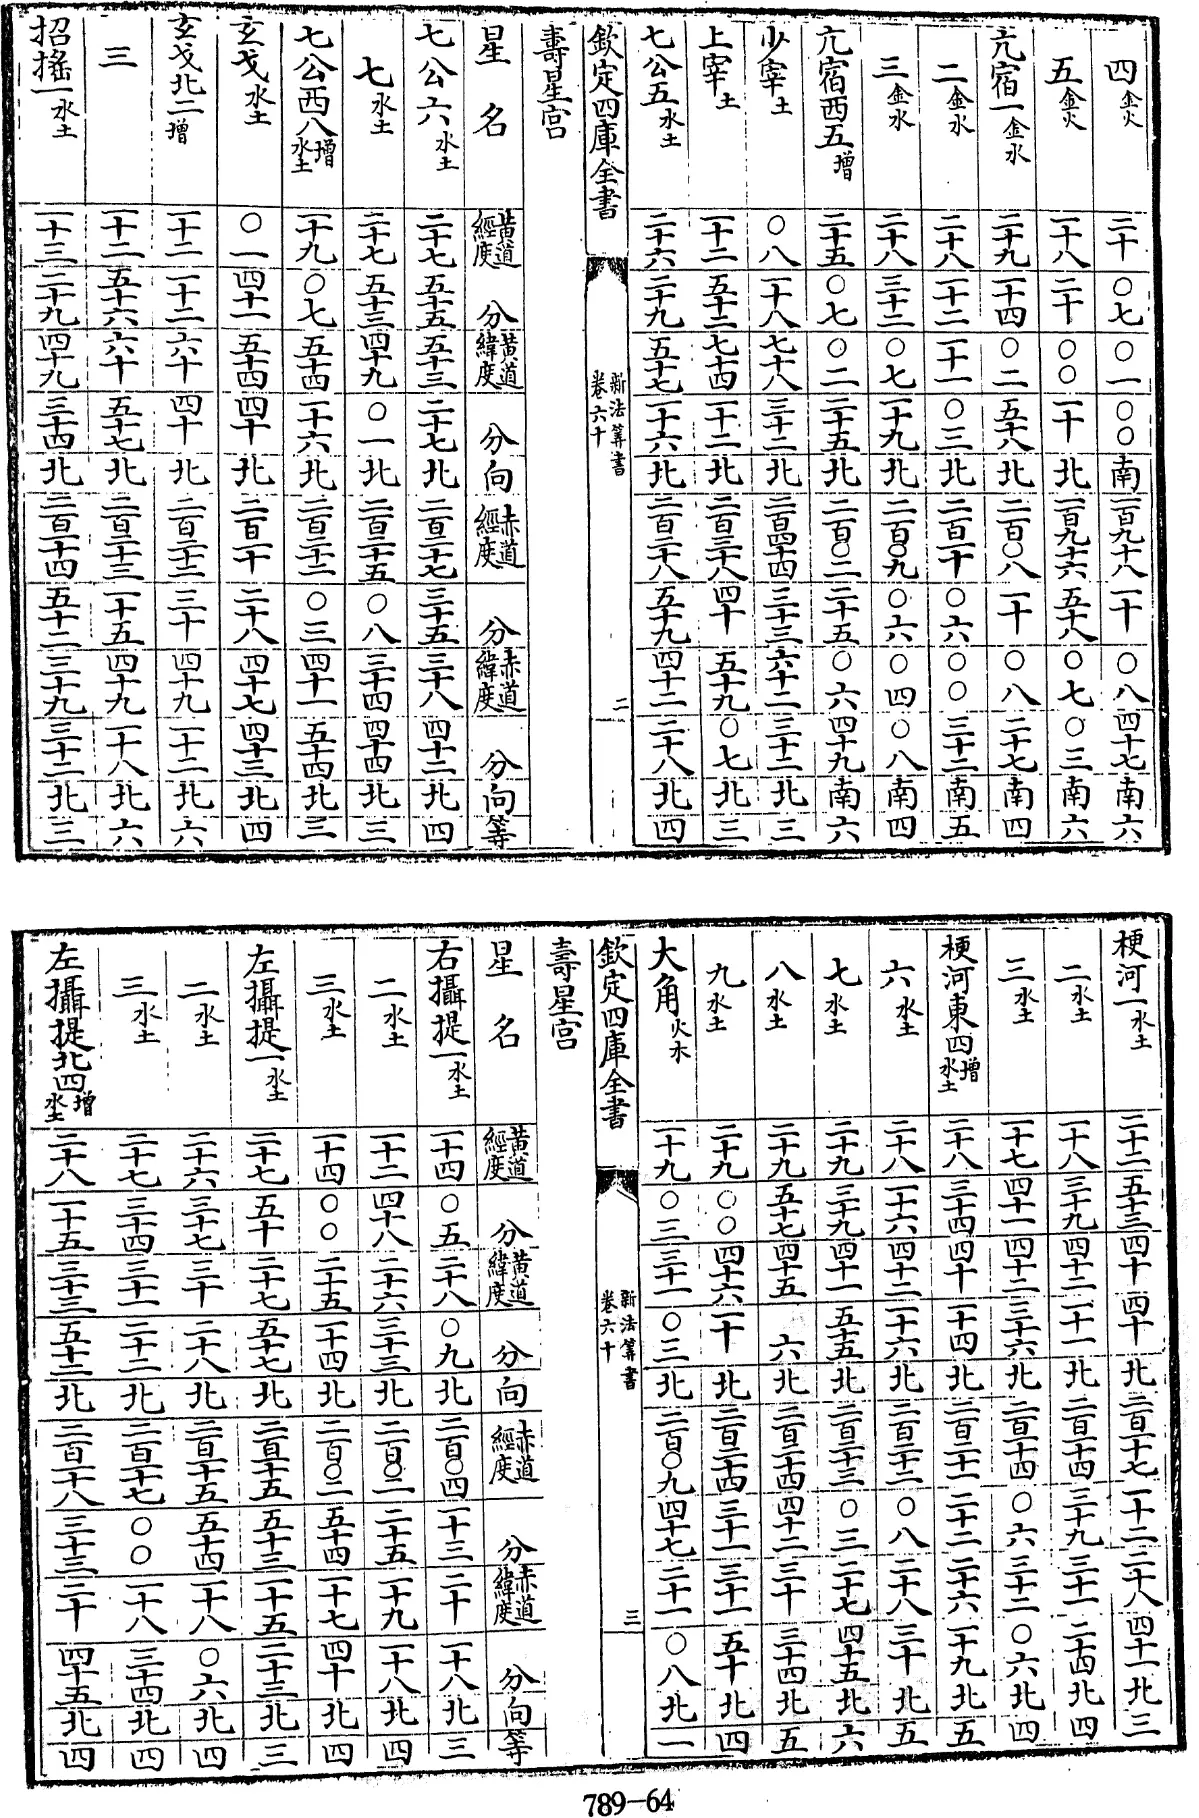 四金火 二十 〇七 〇一 〇〇 南 一百九十八 一十 〇八 四十七 南 六
五金火 一十八 二十 〇〇 一十 北 一百九十六 五十八 〇七 〇三 南 六
亢宿一金水 二十九 一十四 〇二 五十八 北 二百〇八 一十 〇八 二十七 南 四
二金水 二十八 一十二 一十一 〇三 北 二百一十 〇六 〇〇 三十二 南 五
三金水 二十八 三十二 〇七 一十九 北 二百〇九 〇六 〇四 〇八 南 四
亢宿西五增 二十五 〇七 〇二 二十五 北 二百〇二 二十五 〇六 四十九 南 六
少宰土 〇八 一十八 七十八 三十二 北 二百四十四 三十三 六十二 三十二 北 三
上宰土 一十二 五十二 七十四 一十二 北 二百三十八 四十 五十九 〇七 北 三
七公五水土 二十六 二十九 五十七 一十六 北 二百二十八 五十九 四十二 二十八 北 四
欽定四庫全書 新法算書 卷六十 二
壽星宮
星名 黃道經度 分 黃道緯度 分 向 赤道經度 分 赤道緯度 分 向 等
七公六水土 二十七 五十五 五十三 二十七 北 二百二十七 三十五 三十八 四十二 北 四
七水土 二十七 五十三 四十九 〇一 北 二百二十五 〇八 三十四 四十四 北 三
七公西八增水土 一十九 〇七 五十四 一十六 北 二百二十二 〇三 四十一 五十四 北 三
玄戈水土 〇一 四十一 五十四 四十 北 二百一十 二十八 四十七 四十三 北 四
玄戈北二增 一十二 一十二 六十 四十 北 二百二十二 三十 四十九 一十二 北 六
三 一十二 五十六 六十 五十七 北 二百二十三 一十五 四十九 一十八 北 六
招搖一水土 一十三 二十九 四十九 三十四 北 二百一十四 五十二 三十九 三十二 北 三
梗河一水土 二十二 五十三 四十 四十 北 二百一十七 一十二 二十八 四十一 北 三
二水土 一十八 三十九 四十二 一十一 北 二百一十四 三十九 三十一 二十四 北 四
三水土 一十七 四十一 四十二 三十六 北 二百一十四 〇六 三十二 〇六 北 四
梗河東四增水土 二十八 三十四 四十 一十四 北 二百二十一 二十二 二十六 一十九 北 五
六水土 二十八 一十六 四十二 二十六 北 二百二十二 〇八 二十八 三十 北 五
七水土 二十九 三十九 四十一 五十五 北 二百二十三 〇三 二十七 四十五 北 六
八水土 二十九 五十七 四十五 六 北 二百二十四 四十二 三十 三十四 北 五
九水土 二十九 〇〇 四十六 一十 北 二百二十四 三十一 三十一 五十 北 四
大角火木 一十九 〇三 三十一 〇三 北 二百〇九 四十七 二十一 〇八 北 一
欽定四庫全書 新法算書 卷六十 三
壽星宮
星名 黃道經度 分 黃道緯度 分 向 赤道經度 分 赤道緯度 分 向 等
右攝提一水土 一十四 〇五 二十八 〇九 北 二百〇四 一十三 二十 一十八 北 三
二水土 一十二 四十八 二十六 三十三 北 二百〇二 二十五 一十九 一十八 北 四
三水土 一十四 〇〇 二十五 一十四 北 二百〇二 五十四 一十七 四十 北 四
左攝提一水土 二十七 五十 二十七 五十七 北 二百一十五 五十三 一十五 二十三 北 三
二水土 二十六 三十七 三十 二十八 北 二百一十五 五十四 一十八 〇六 北 四
三水土 二十七 三十四 三十一 二十二 北 二百一十七 〇〇 一十八 三十四 北 四
左攝提北四增水土 二十八 一十五 三十三 五十二 北 二百一十八 三十三 二十 四十五 北 四
789-64